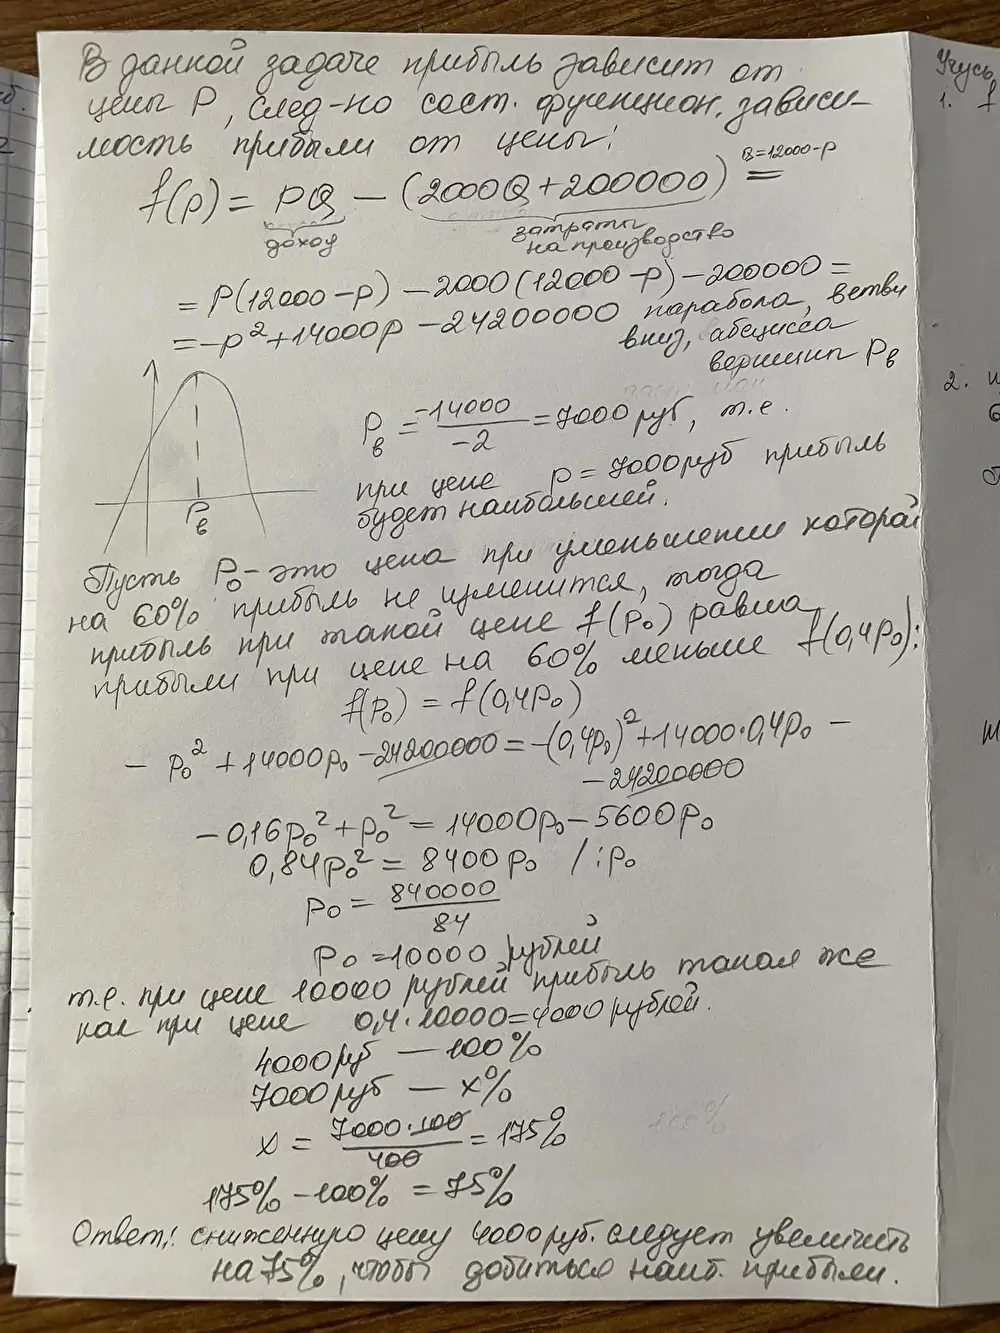 В данной задаче прибыль зависит от
цены P, след-но сост. функцион. зависи-
мость прибыли от цены:
f(p) = PQ - (2000Q + 200000) =
Q=12000-p
доход
затраты
на производство
= P(12000-p) - 2000(12000-p) - 200000 =
= -p² + 14000p - 24200000 парабола, ветви
вниз, абсцисса
вершины Pв
Pв = -14000 / -2 = 7000 руб, т.е.
при цене p = 7000 руб прибыль
будет наибольшей.
Pв
Пусть P₀ - это цена при уменьшении которой
на 60% прибыль не изменится, тогда
прибыль при такой цене f(P₀) равна
прибыли при цене на 60% меньше f(0,4P₀):
f(P₀) = f(0,4P₀)
- P₀² + 14000P₀ - 24200000 = -(0,4P₀)² + 14000·0,4P₀ -
- 24200000
- 0,16P₀² + P₀² = 14000P₀ - 5600P₀
0,84P₀² = 8400P₀ /:P₀
P₀ = 840000 / 84
P₀ = 10000 рублей
т.е. при цене 10000 рублей прибыль такая же
как при цене 0,4·10000=4000 рублей.
4000 руб — 100%
7000 руб — x%
x = 7000·100 / 400 = 175%
175% - 100% = 75%
Ответ: сниженную цену 4000 руб. следует увеличить
на 75%, чтобы добиться наиб. прибыли.
1. f
2. и